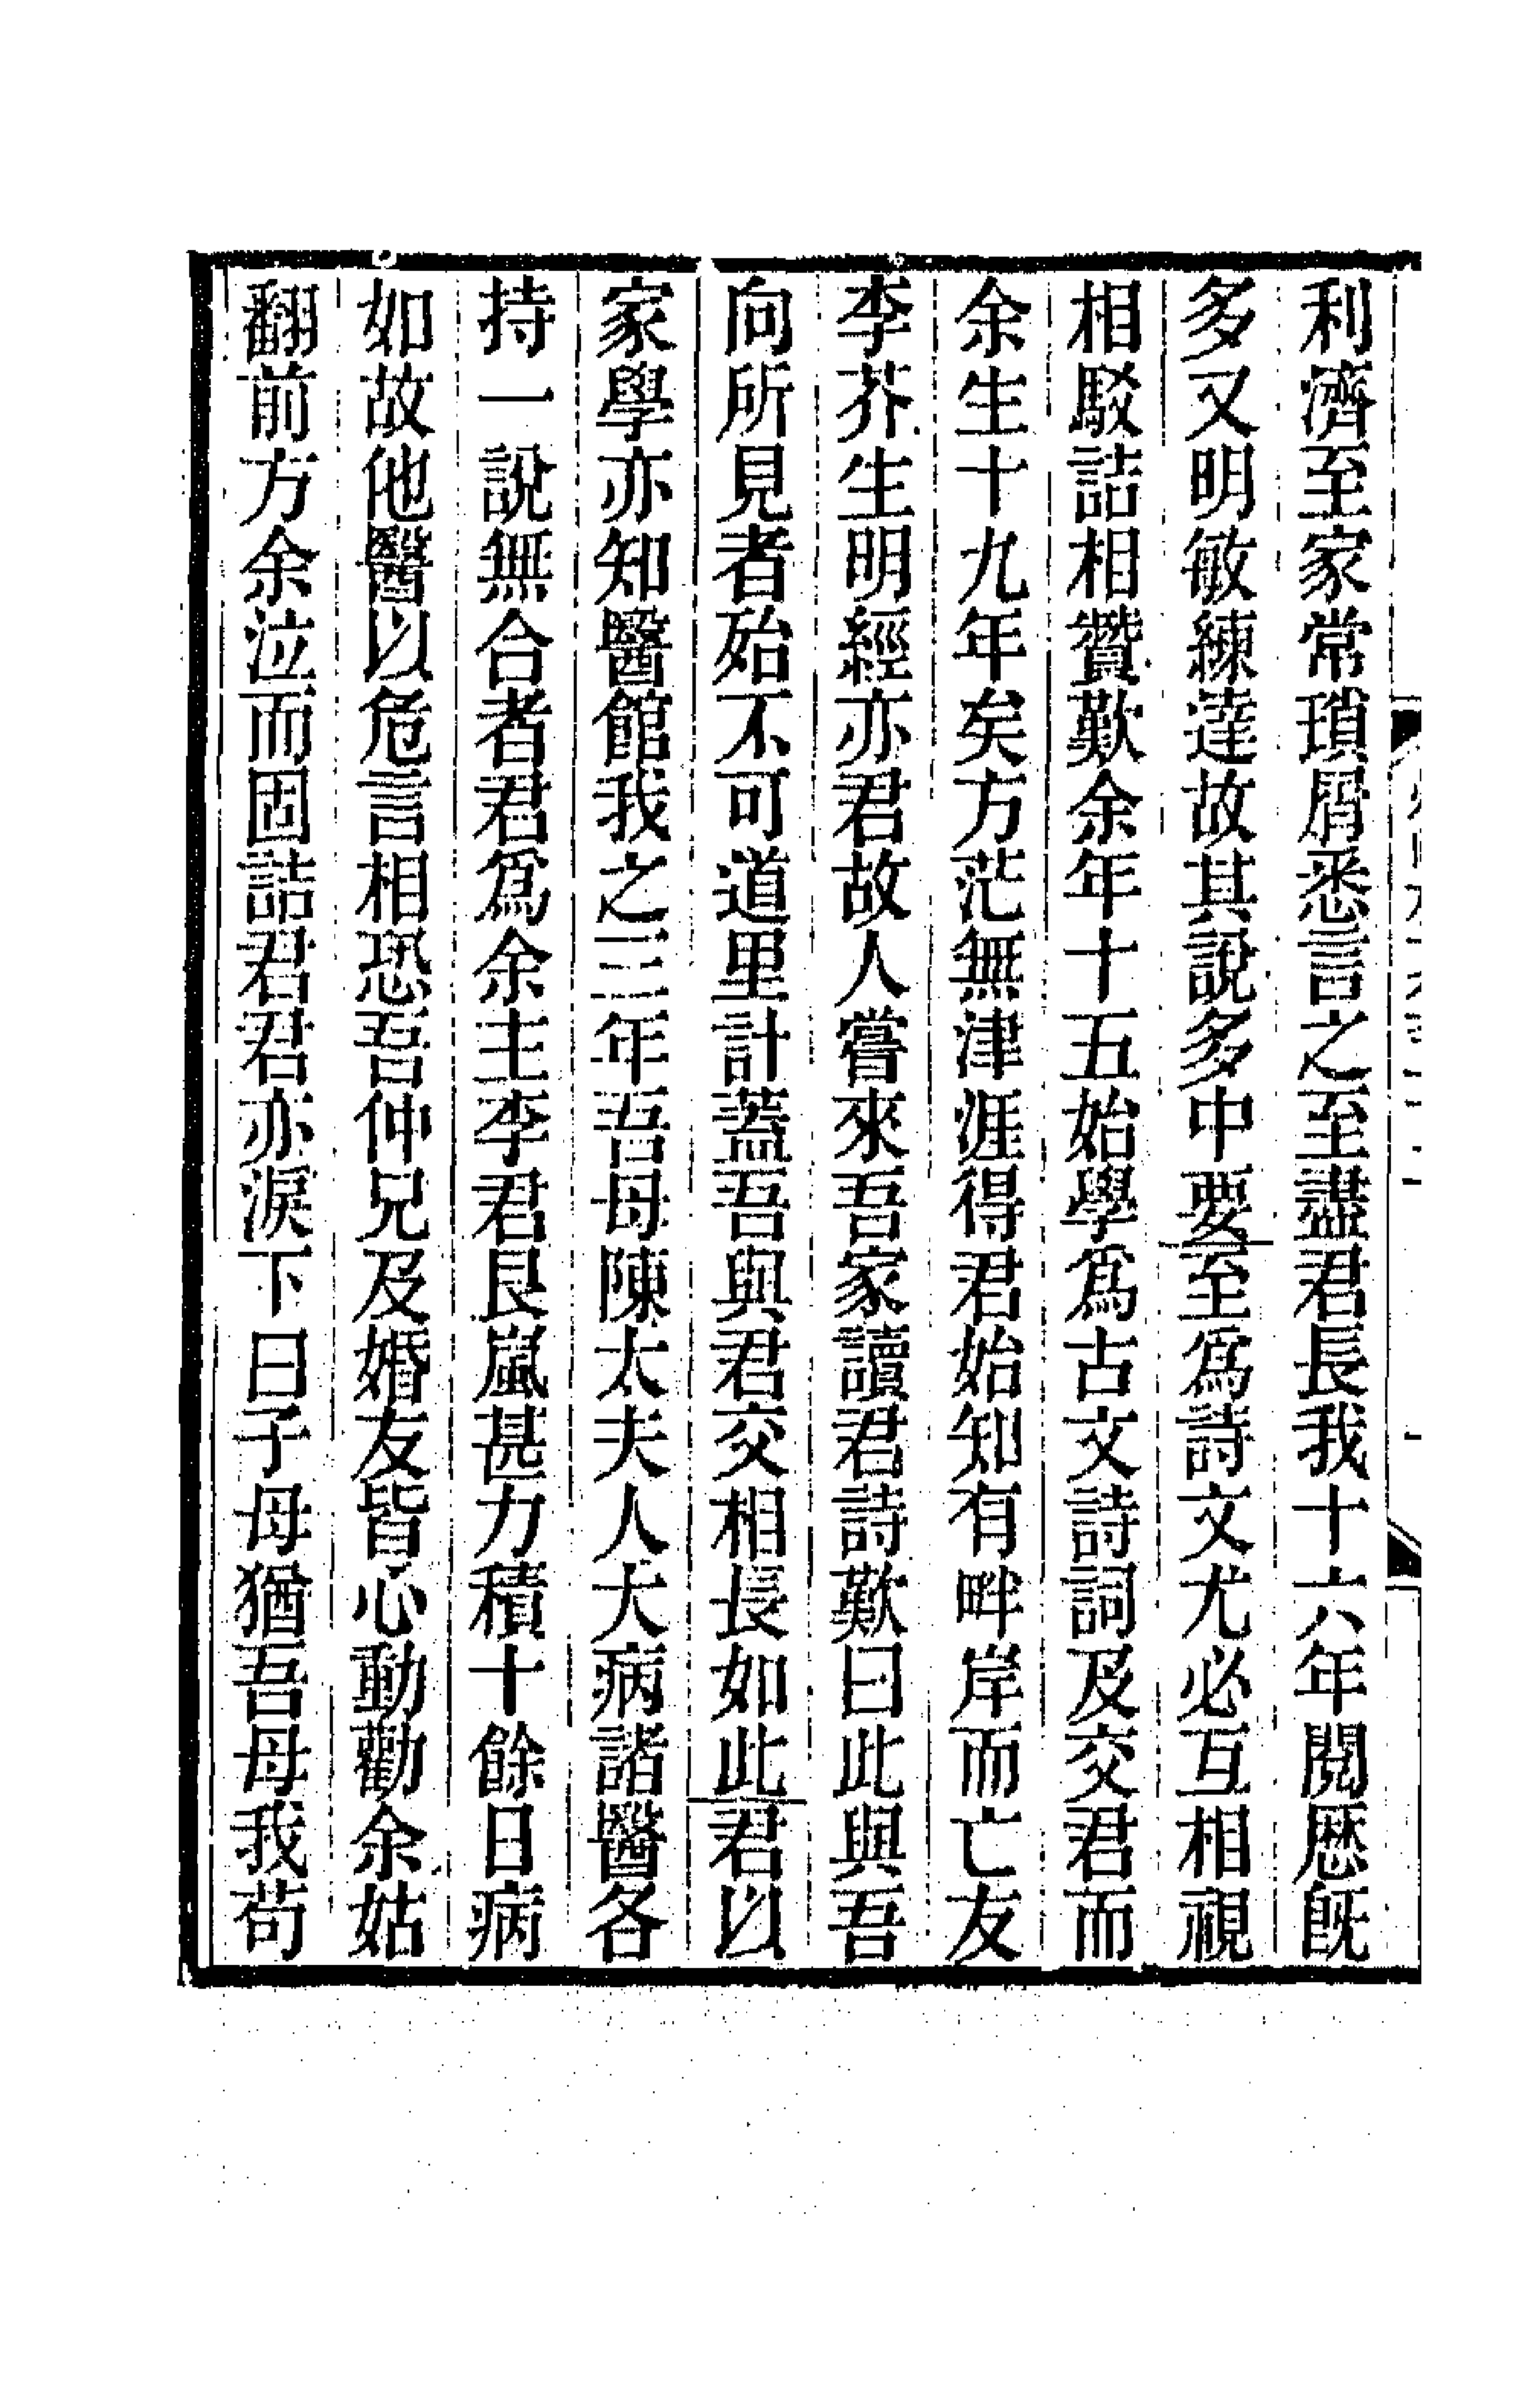 利濟至家常瑣屑悉言之至盡君長我十六年閱歷旣
多又明敏練達故其說多中要至爲詩文尤必互相視
相駁詰相贊歎余年十五始學爲古文詩詞及交君而
余生十九年矣方茫無津涯得君始知有畔岸而亡友
李芥生明經亦君故人嘗來吾家讀君詩歎曰此與吾
向所見者殆不可道里計蓋吾與君交相長如此君以
家學亦知醫館我之三年吾母陳太夫人大病諸醫各
持一說無合者君爲余主李君艮嵐甚力積十餘日病
如故他醫以危言相恐吾仲兄及婚友皆心動勸余姑
翻前方余泣而固詰君君亦淚下曰子母猶吾母我苟